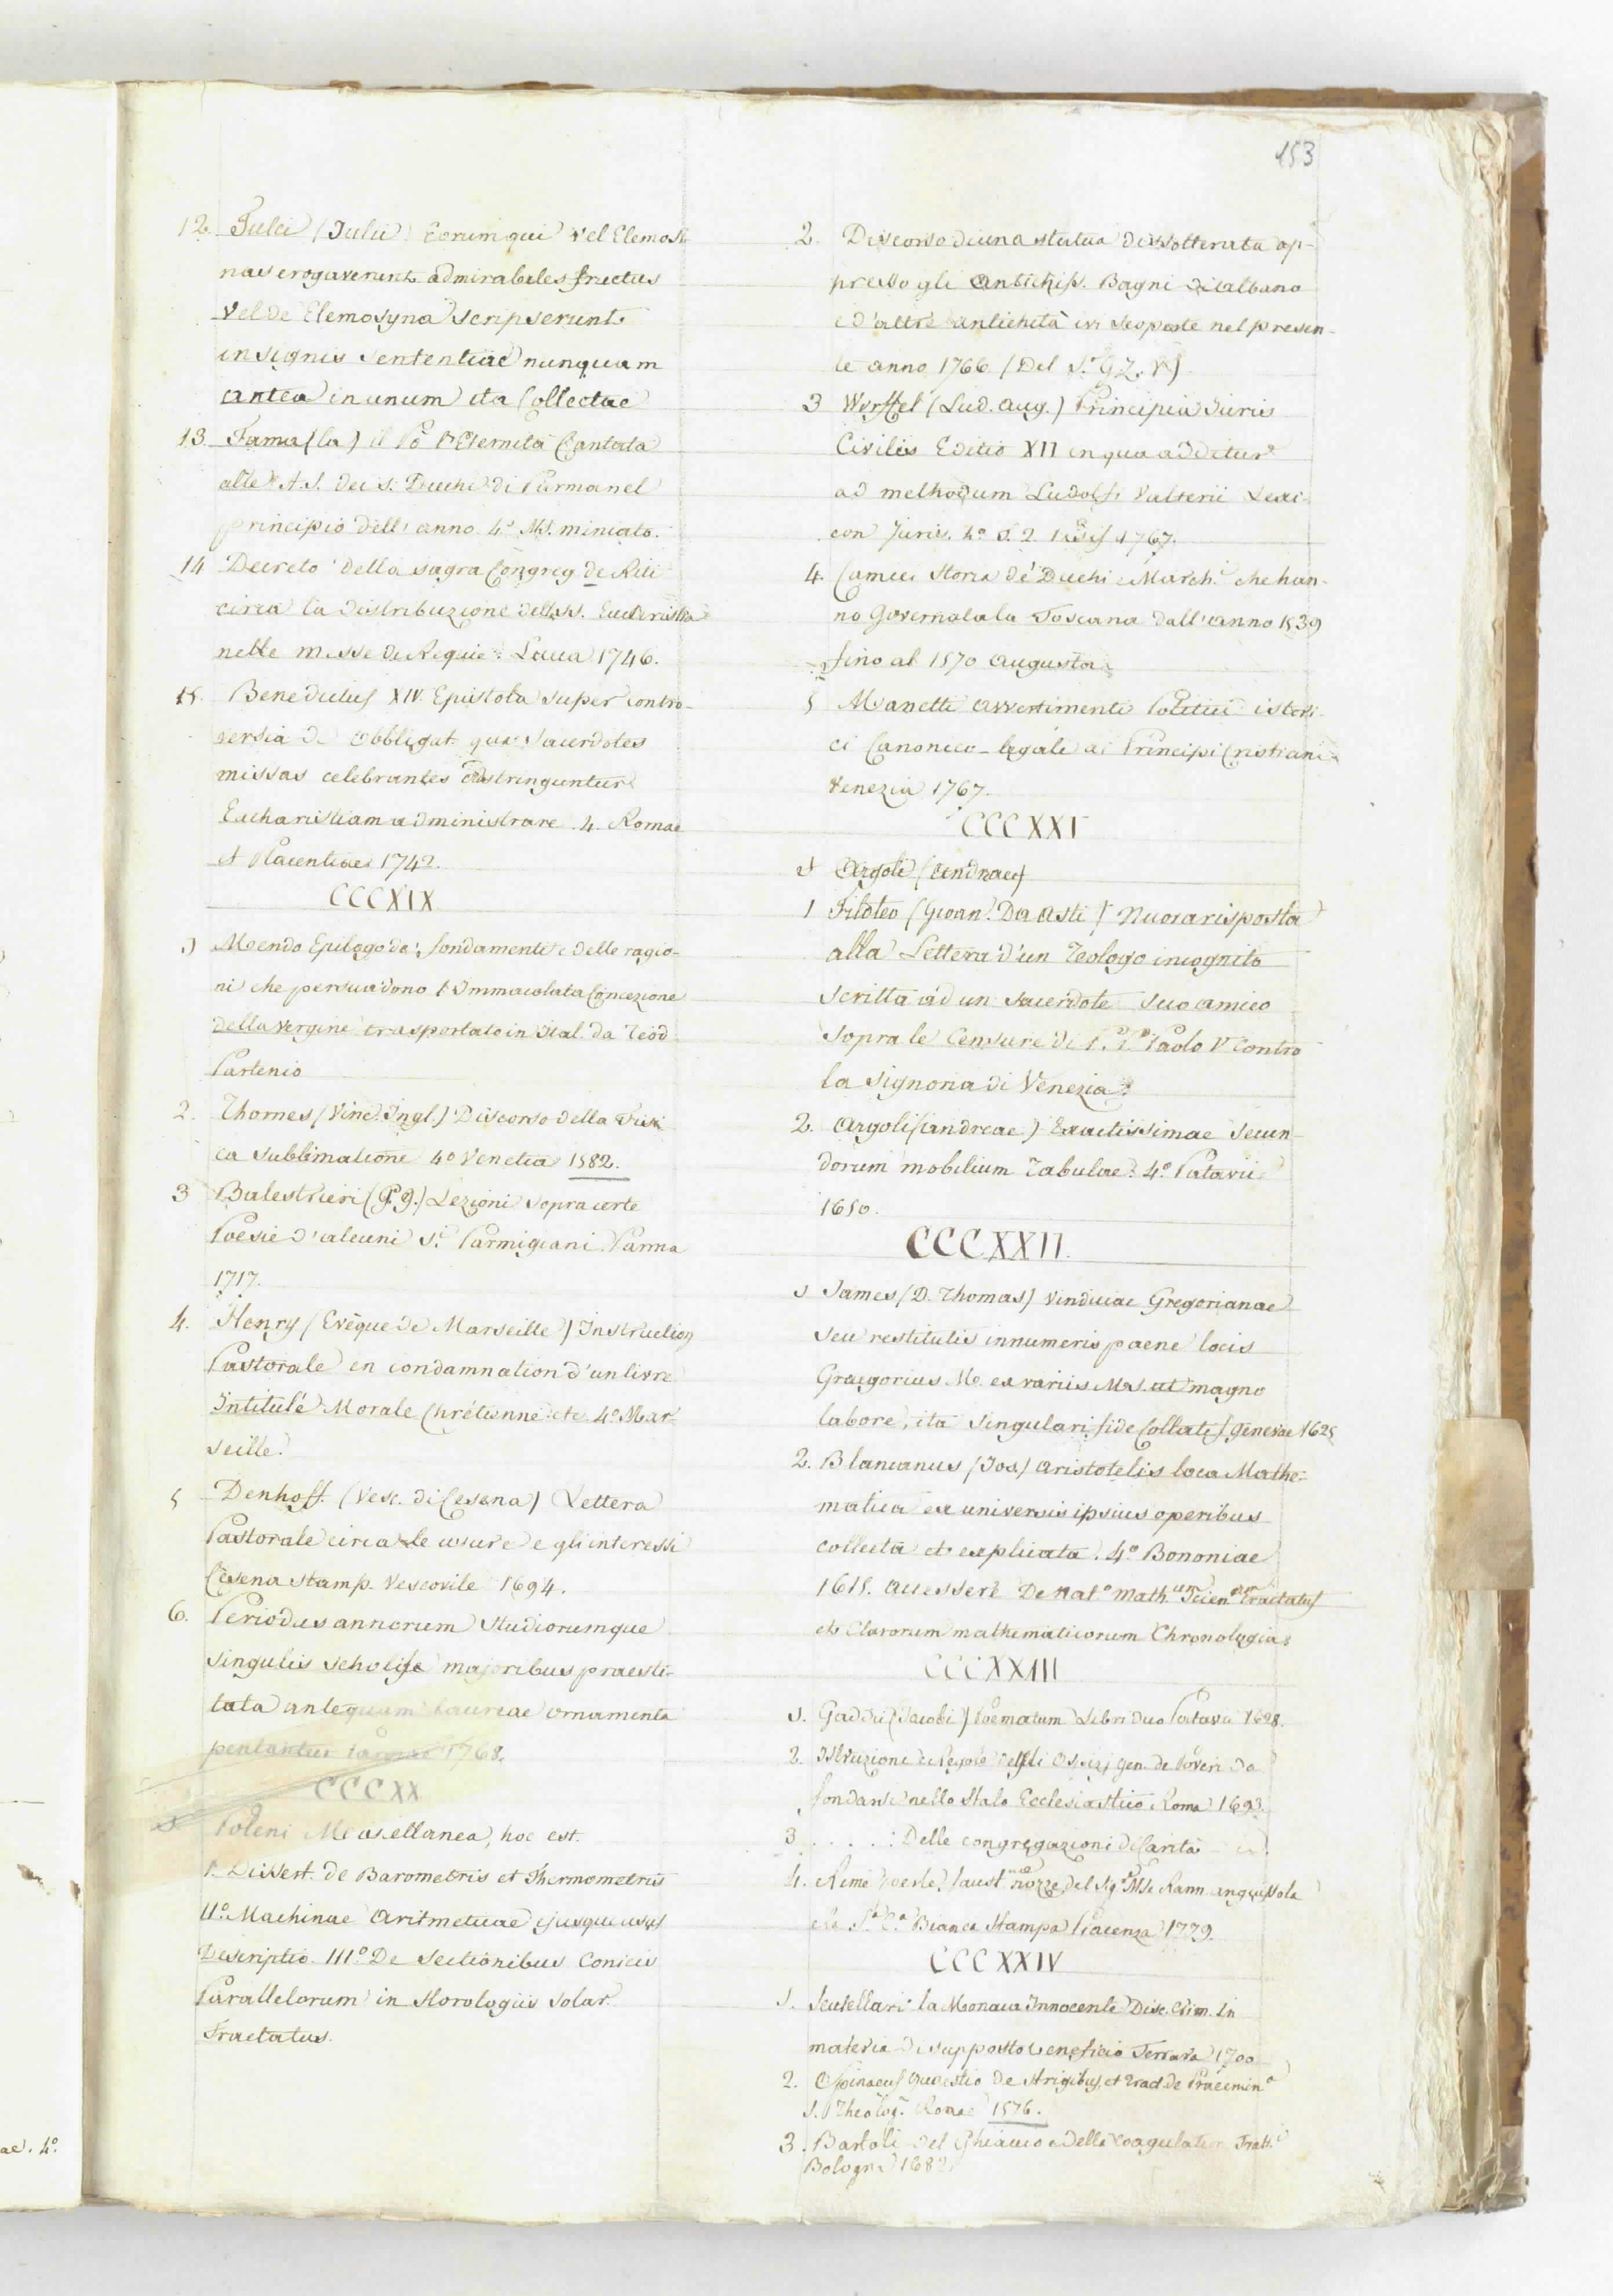 153
12 Fulci (Julii) Eorum qui vel Elemosi-
nas erogaverunt admirabiles fructus
vel de Elemosyna scripserunt
insignis sententiae nunquam
antea in unum ita Collectae
13. Fama (la) il Pò l'Eternità Cantata
alle A. S. dei S. Duchi di Parma nel
principio dell'anno 4.º MS. miniato.
14 Decreto della sagra Congreg de Riti
circa la distribuzione della SS. Eucaristia
nelle messe de Requie. Lucca 1746.
15. Benedictus XIV. Epistola super contro-
versia de obbligat. qua Sacerdotes
missas celebrantes adstringuntur
Eucharistiam administrare. 4. Romae
et Placentiae 1742.
CCCXIX
1 Mendo Epilogo de' fondamenti e delle ragio-
ni che persuadono l'Immacolata Concezione
della Vergine trasportato in Ital. da Teod.
Partenio
2. Thornes (Vinc. Ingl.) Discorso della Fisi
ca sublimatione 4º Venetia 1582.
3 Balestrieri (P. G.) Lezioni sopra certe
Poesie d'alcuni S.i Parmigiani. Parma
1717.
4. Henry (Evêque de Marseille) Instruction
Pastorale en condamnation d'un livre
Intitulé Morale Chrétienne etc. 4º Mar-
seille.
5 Denhoff. (Vesc. di Cesena) Lettera
Pastorale circa le usure e gli interessi
Cesena Stamp. Vescovile 1694.
6. Periodus annorum studiorumque
singulis scholis majoribus praesti-
tuta antequam laureae ornamenta
petantur 1768.
CCCXX
Poleni Miscellanea, hoc est.
1. Dissert. de Barometris et Thermometris
IIº. Machinae Aritmeticae ejusque usus
Descriptio. IIIº. De Sectionibus Conicis
Parallelorum in Horologiis Solar.
Tractatus.
2. Discorso di una statua dissotterrata ap-
presso gli Antichiss. Bagni di Albano
e d'altre antichità ivi scoperte nel presen-
te anno 1766 (Del S.r G. Z. V)
3 Wyrffel (Lud. Aug.) Principia Iuris
Civilis Editio XII in qua additur
ad methodum Ludolfi Valterii Lexi-
con Juris. 4º 1767.
4. Camici Storia de' Duchi e March.i che han-
no Governata la Toscana dall'anno 1539
fino al 1570 Augusta
5 Manetti Avvertimenti Politici istori-
ci Canonico-legali ai Principi Cristiani
Venezia 1767.
CCCXXI
1 Argoli (Andraeas)
1 Filoteo (Gioan. Da Asti) Nuova risposta
alla Lettera d'un Teologo incognito
scritta ad un Sacerdote suo amico
sopra le Censure di P.P. Paolo V contro
la Signoria di Venezia
2. Argoli (Andreae) Exactissimae Secun-
dorum mobilium Tabulae. 4º. Patavii
1650.
CCCXXII.
1 James (D. Thomas) Vindiciae Gregorianae
seu restitutis innumeris paene locis
Graegorius M. ex variis Ms. ut magno
labore, ita singulari fide Collatis Genevae 1625
2. Blancanus (Jos) Aristotelis loca Mathe-
matica ex universis ipsius operibus
collecta et explicata. 4º Bononiae
1615. Accessere De Nat.a Math.um Scien.um Tractatus
et Clarorum mathematicorum Chronologia
CCCXXIII
1. Gaddii (Jacobi) Poematum Libri duo Patavii 1628.
2. Istruzione e Regole degli Ospizj Gen. de Poveri da
fondarsi nello Stato Ecclesiastico Roma 1693.
3 . . . . : Delle congregazioni di Carità
4. Rime per le faust.me nozze del Sig.r Mse Rann. Anguissola
e la S.a C.a Bianca Stampa Piacenza 1779.
CCCXXIV
1. Scutellari la Monaca Innocente Disc. Crim. in
materia di supposto veneficio Ferrara 1700
2. Spinaeus Quaestio de Strigibus, et Tract. de Praeemin.a
S. Theolog. Romae 1576.
3. Bartoli del Ghiaccio e della coagulation Tratt.i
Bologna 1682.
ae. 4º.